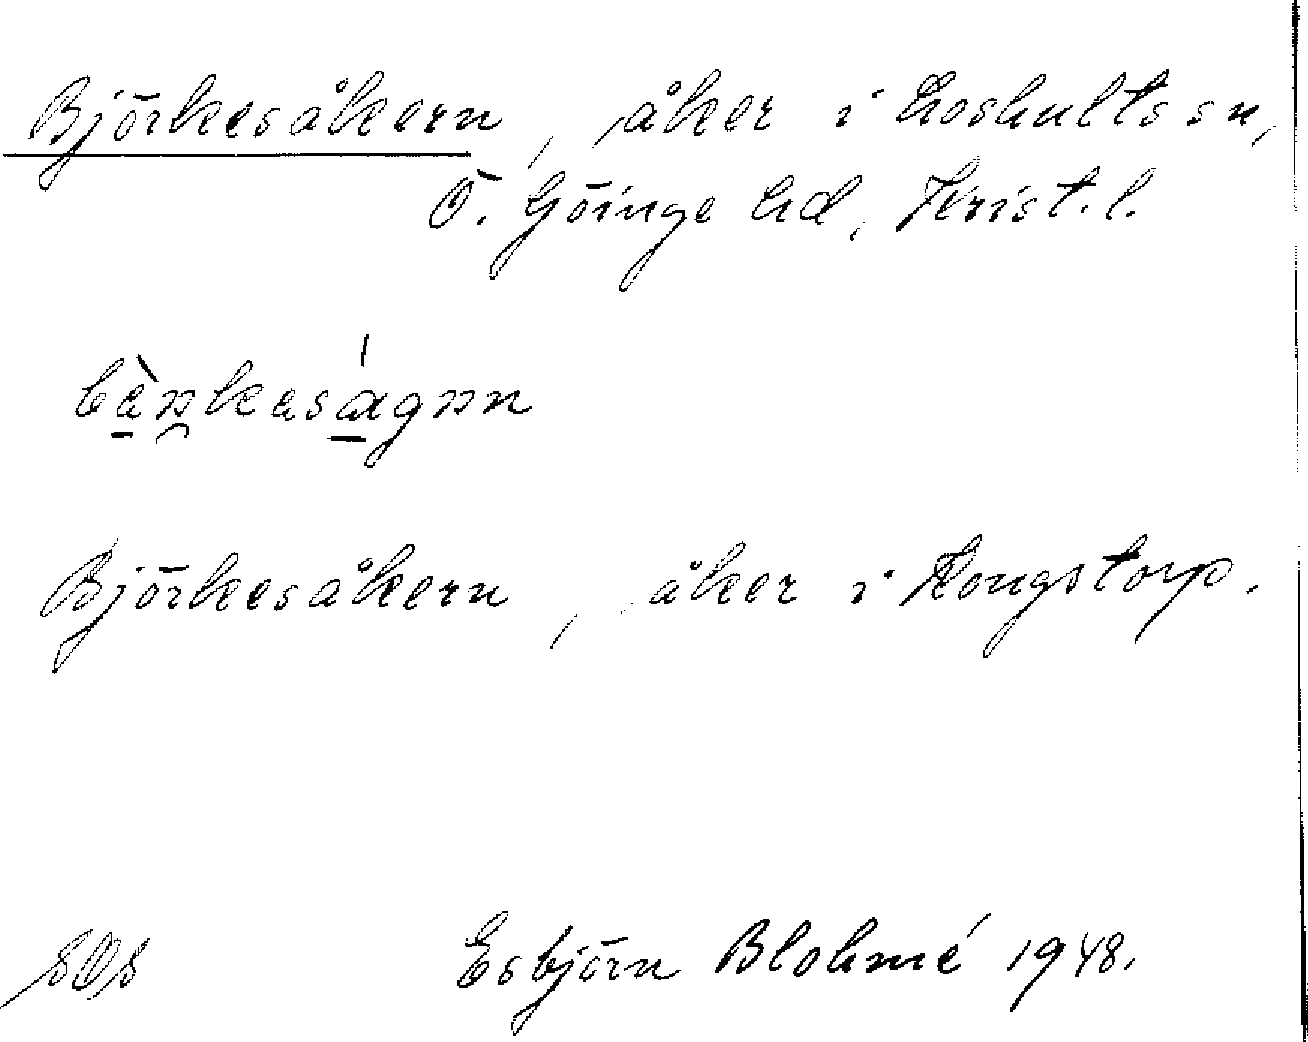 Björkesåkern, åker i Loshults sn,
Ö. Göinge hd, Krist. l.
Björkesåkern, åker i Kongstorp.
Esbjörn Blohmé 1948.